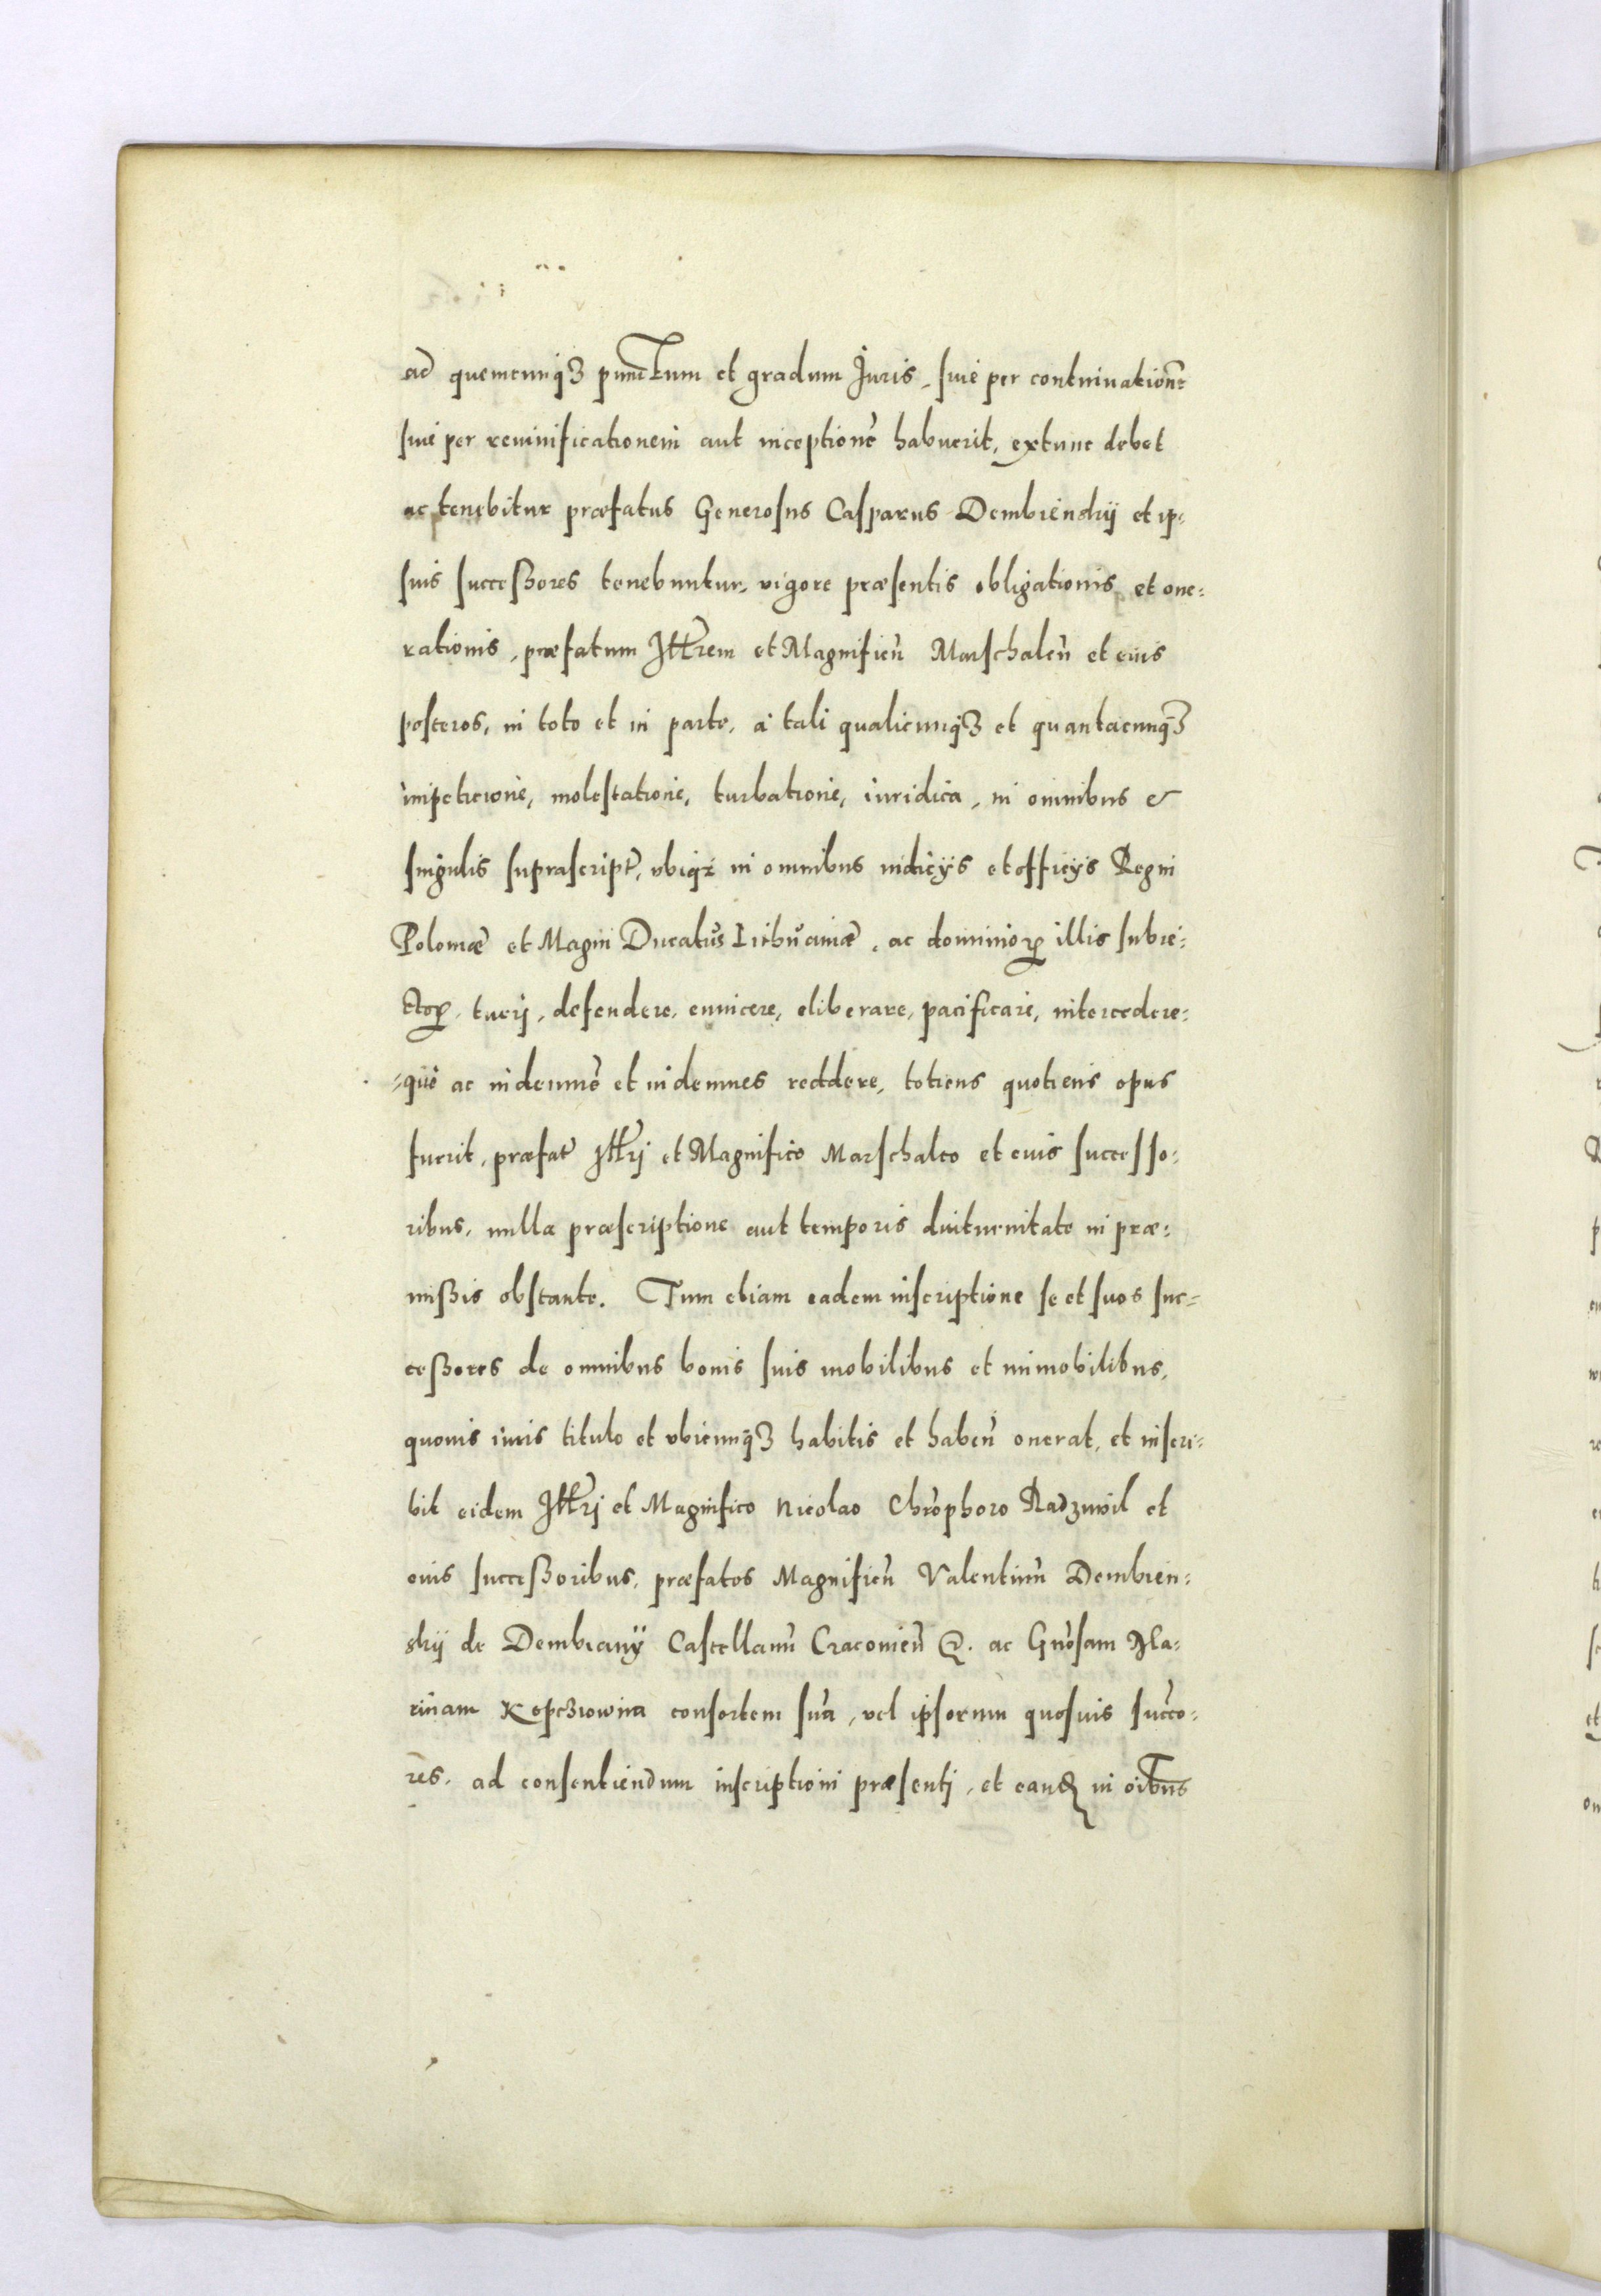 ad quemcunqȝ punctum et gradum Juris, siue per continuationē
siue per reuiuificationem aut inceptionē habuerit, extunc debet
ac tenebitur præfatus Generosus Casparus Dembienskÿ et ip=
sius successores tenebuntur, vigore præsentis obligationis et one=
rationis, præfatum Illrem et Magnificū Marschalcū et eius
posteros, in toto et in parte, a tali qualicunqȝ et quantacunqȝ
impeticione, molestatione, turbatione, iuridica, in omnibus &
singulis suprascript, vbiqȝ in omnibus iudicÿs et officÿs Regni
Poloniæ et Magni Ducatus Lithuaniæ, ac dominioꝝ illis subie=
ctoꝝ, tuerj, defendere, euincere, eliberare, pacificare, intercedere=
=que ac indemnē et indemnes reddere, totiens quotiens opus
fuerit, præfat Illrj et Magnifico Marschalco et eius successo=
ribus, nulla præscriptione aut temporis diuturnitate in præ=
missis obstante. Tum etiam eadem inscriptione se et suos suc=
cessores de omnibus bonis suis mobilibus et immobilibus,
quouis iuris titulo et vbicunqȝ habitis et habeñ onerat, et inscri=
bit eidem Illrj et Magnifico Nicolao Chrophoro Radzıwil et
eius successoribus, præfatos Magnificū Valentinū Dembien=
skÿ de Dembianÿ Castellanū Cracouieñ &. ac Gñosam Kla=
rinam Kopcziowna consortem suā, vel ipsorum quosuis succo=
res, ad consentiendum inscriptioni præsentj, et eandꝫ in oibus